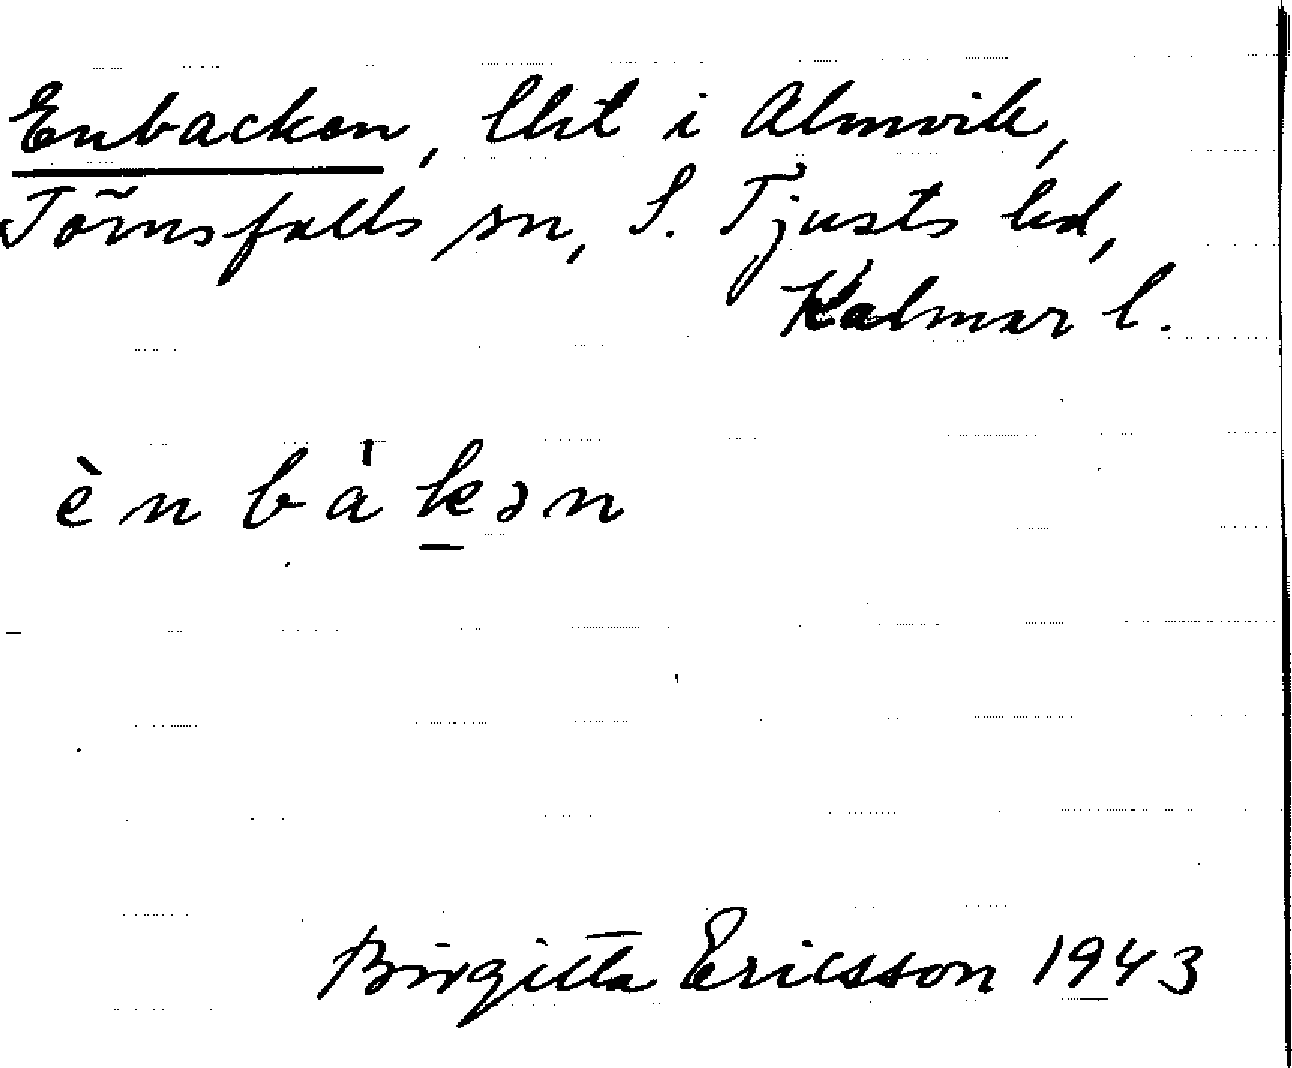 Enbacken, lht i Almvik,
Törnsfalls sn, S. Tjusts hd,
Kalmar l.
ènbák̲ən
Birgitta Ericsson 1943